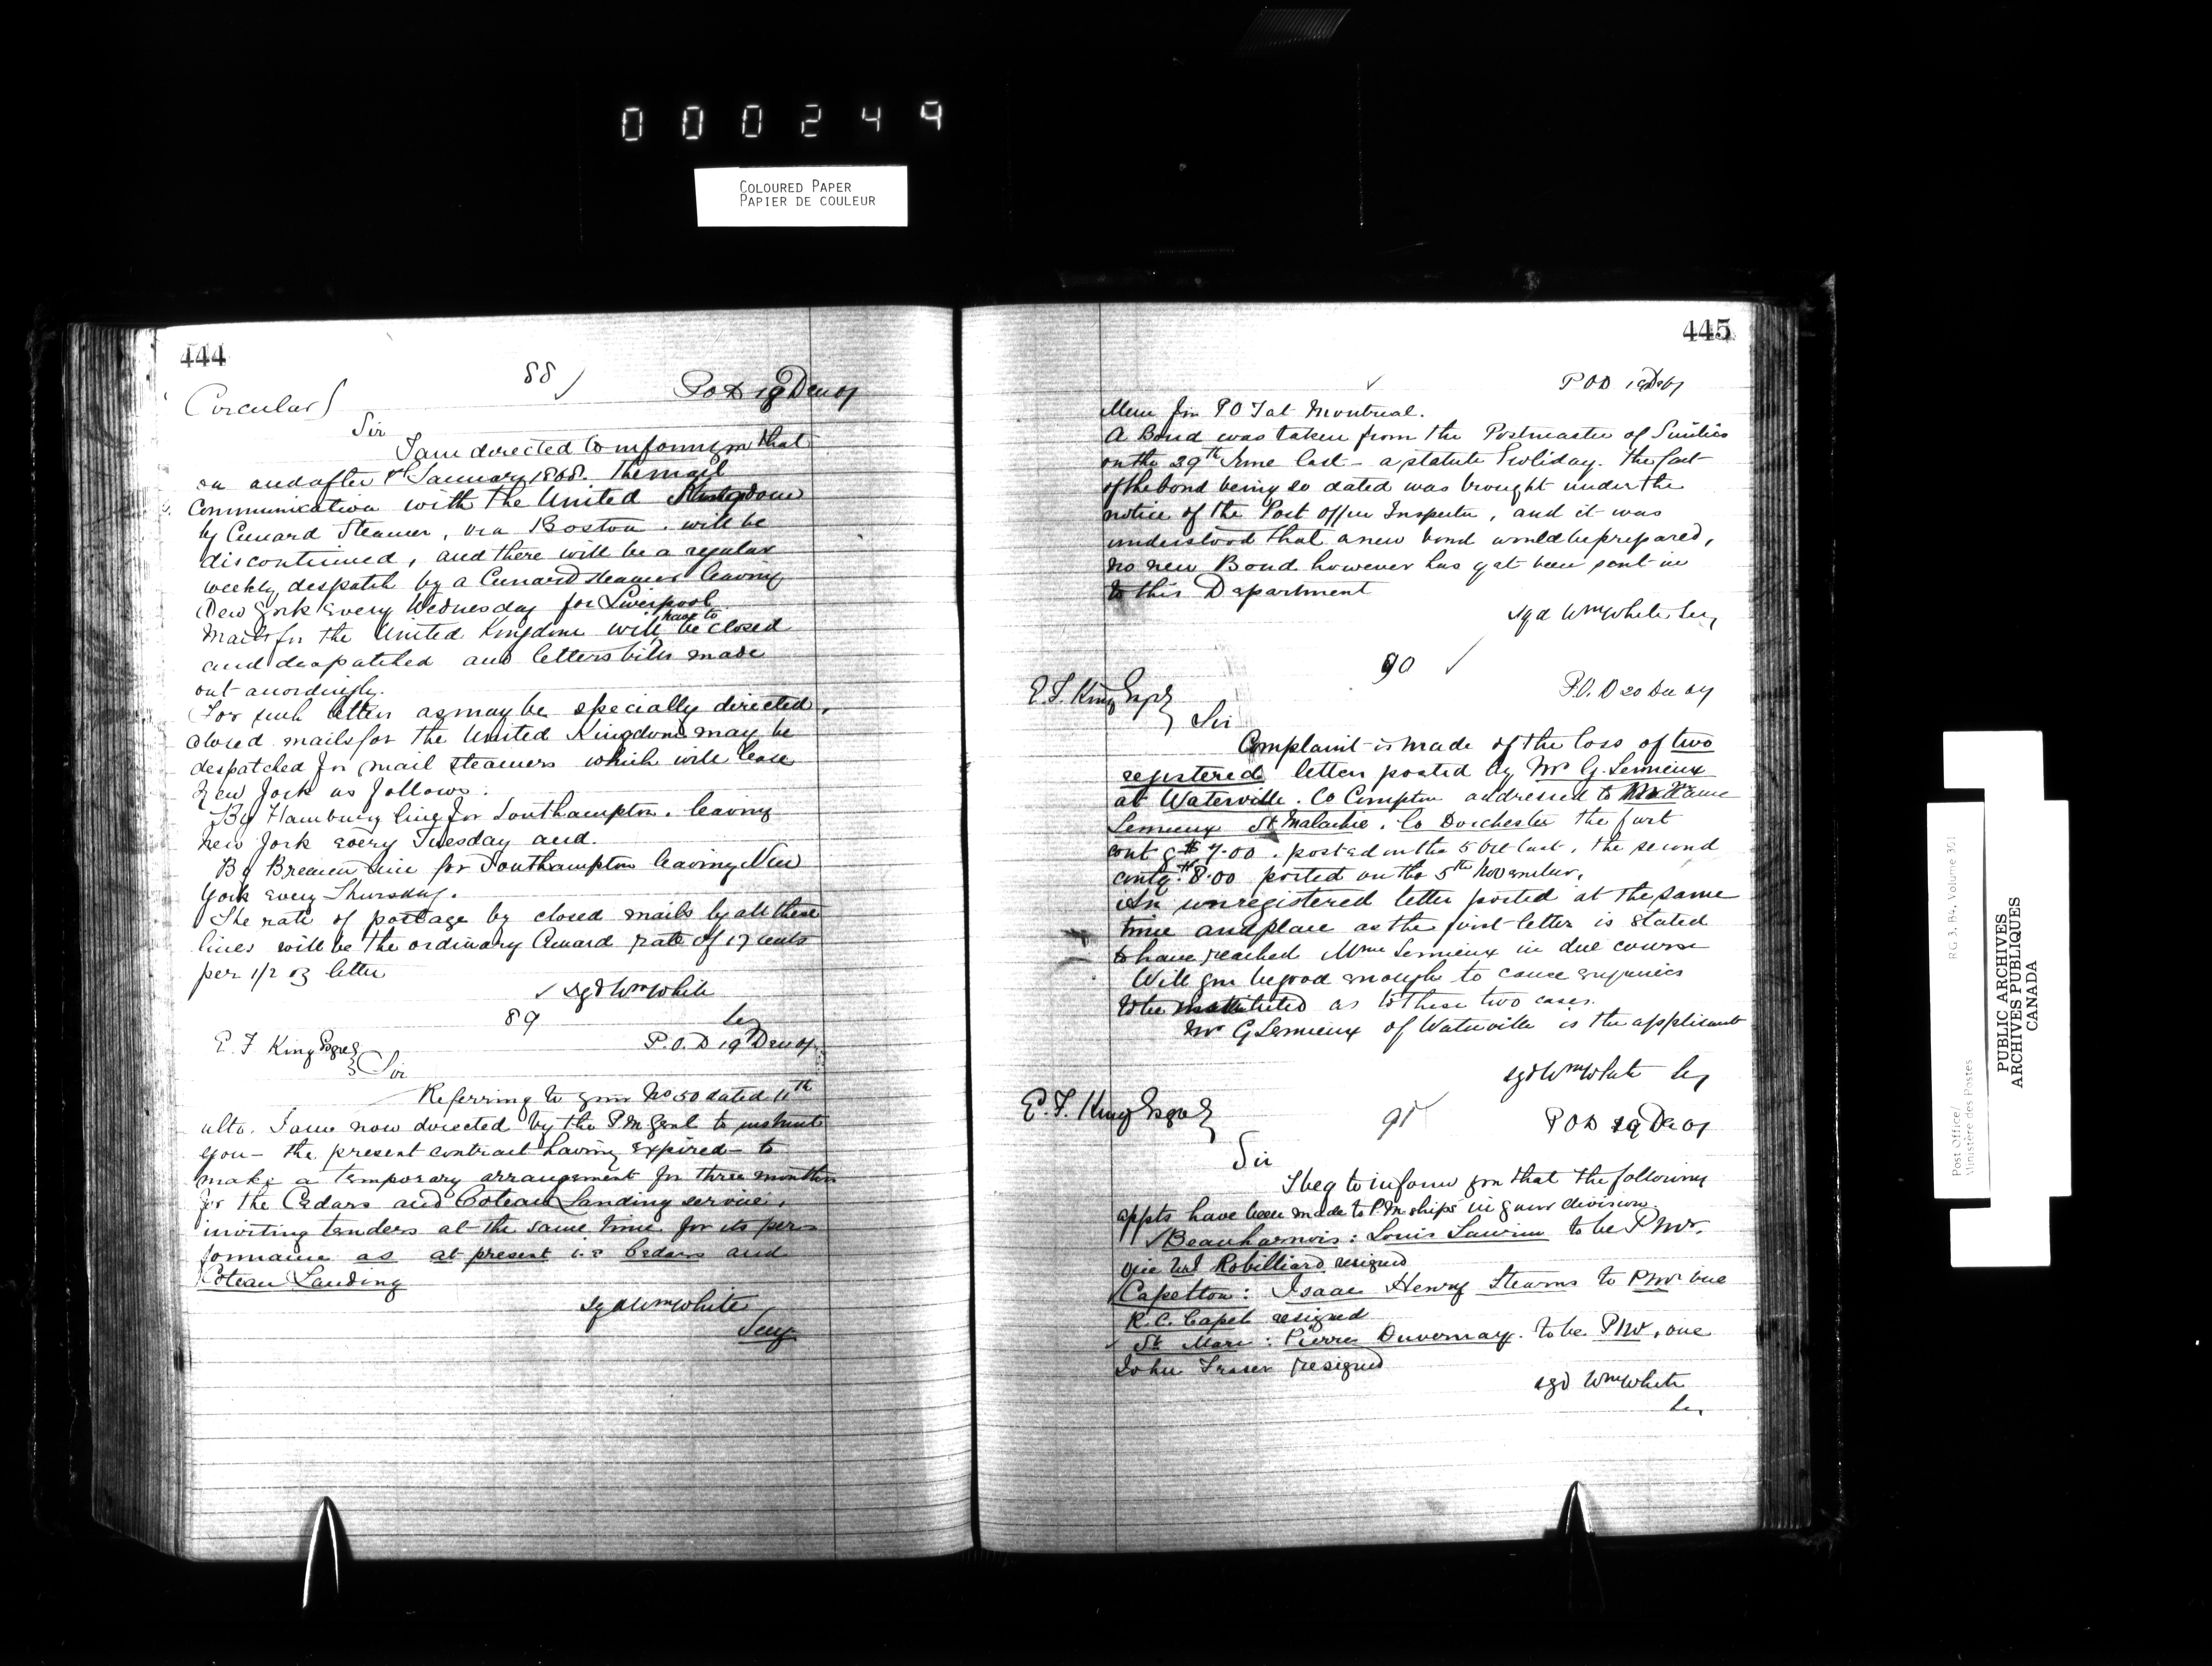 000249
COLOURED PAPER
PAPIER DE COULEUR
444
88
P O D 19 Dec 67
Circular
Sir
I am directed to inform you that
on and after 1st January 1868. the mail
communication with the United Kingdom
by Cunard Steamer, via Boston. will be
discontinued, and there will be a regular
weekly despatch by a Cunard steamer leaving
New York every Wednesday for Liverpool
Mails for the United Kingdom will have to be closed
and despatched and letters bills made
out accordingly.
For such letters as may be specially directed,
closed mails for the United Kingdom may be
despatched for mail steamers which will leave
New York as follows.
By Hamburg line for Southampton. leaving
New York every Tuesday and.
By Bremen line for Southampton leaving New
York every Thursday.
The rate of postage by closed mails by all these
lines will be the ordinary Cunard rate of 17 cents
per 1/2 oz letter
sgd Wm White
Sey
89
P.O.D 19 Dec 67
E. F King Esqre
Sir
Referring to your No 50 dated 11th
ulto. I am now directed by the P M Genl to instruct
you - the present contract having expired - to
make a temporary arrangement for three months
for the Cedars and Coteau Landing service,
inviting tenders at the same time for its per-
formance as at present i.e Cedars and
Coteau Landing
sgd Wm White
Secy
445
P O D 19 Dec 67
Mem for P O I at Montreal.
A Bond was taken from the Postmaster of
on the 29th June last - a statute Holiday. The fact
of the bond being so dated was brought under the
notice of the Post Office Inspector, and it was
understood that a new bond would be prepared,
no new Bond however has yet been sent in
to this Department
sgd Wm White Sey
90
P.O.D 20 Dec 67
E. F. King Esqre
Sir
Complaint is made of the loss of two
registered letters posted by Mr G. Lemieux
at Waterville. Co Compton addressed to Madame
Lemieux St Malachie. Co Dorchester the first
contg $7.00. posted on the 5 Oct last, the second
contg. $8.00 posted on the 5th November.
An unregistered letter posted at the same
time and place as the first letter is stated
to have reached Mme Lemieux in due course
Will you be good enough to cause enquiries
to be instituted as to these two cases.
Mr G Lemieux of Waterville is the applicant
sgd Wm White Sey
E. F. King Esqre
91
P O D 19 Dec 67
Sir
I beg to inform you that the following
appts have been made to P. M ships in your division
Beauharnois: Louis to be P Mr.
vice Robilliard resigned
Capelton: Isaac Henry Stearns to P Mr vice
R. C. Capel resigned
St Marc: Pierre Duvernay. to be P Mr, vice
John Fraser resigned
sgd Wm White
Sey
Post Office/
Ministère des Postes
RG 3, B4, Volume 301
PUBLIC ARCHIVES
ARCHIVES PUBLIQUES
CANADA